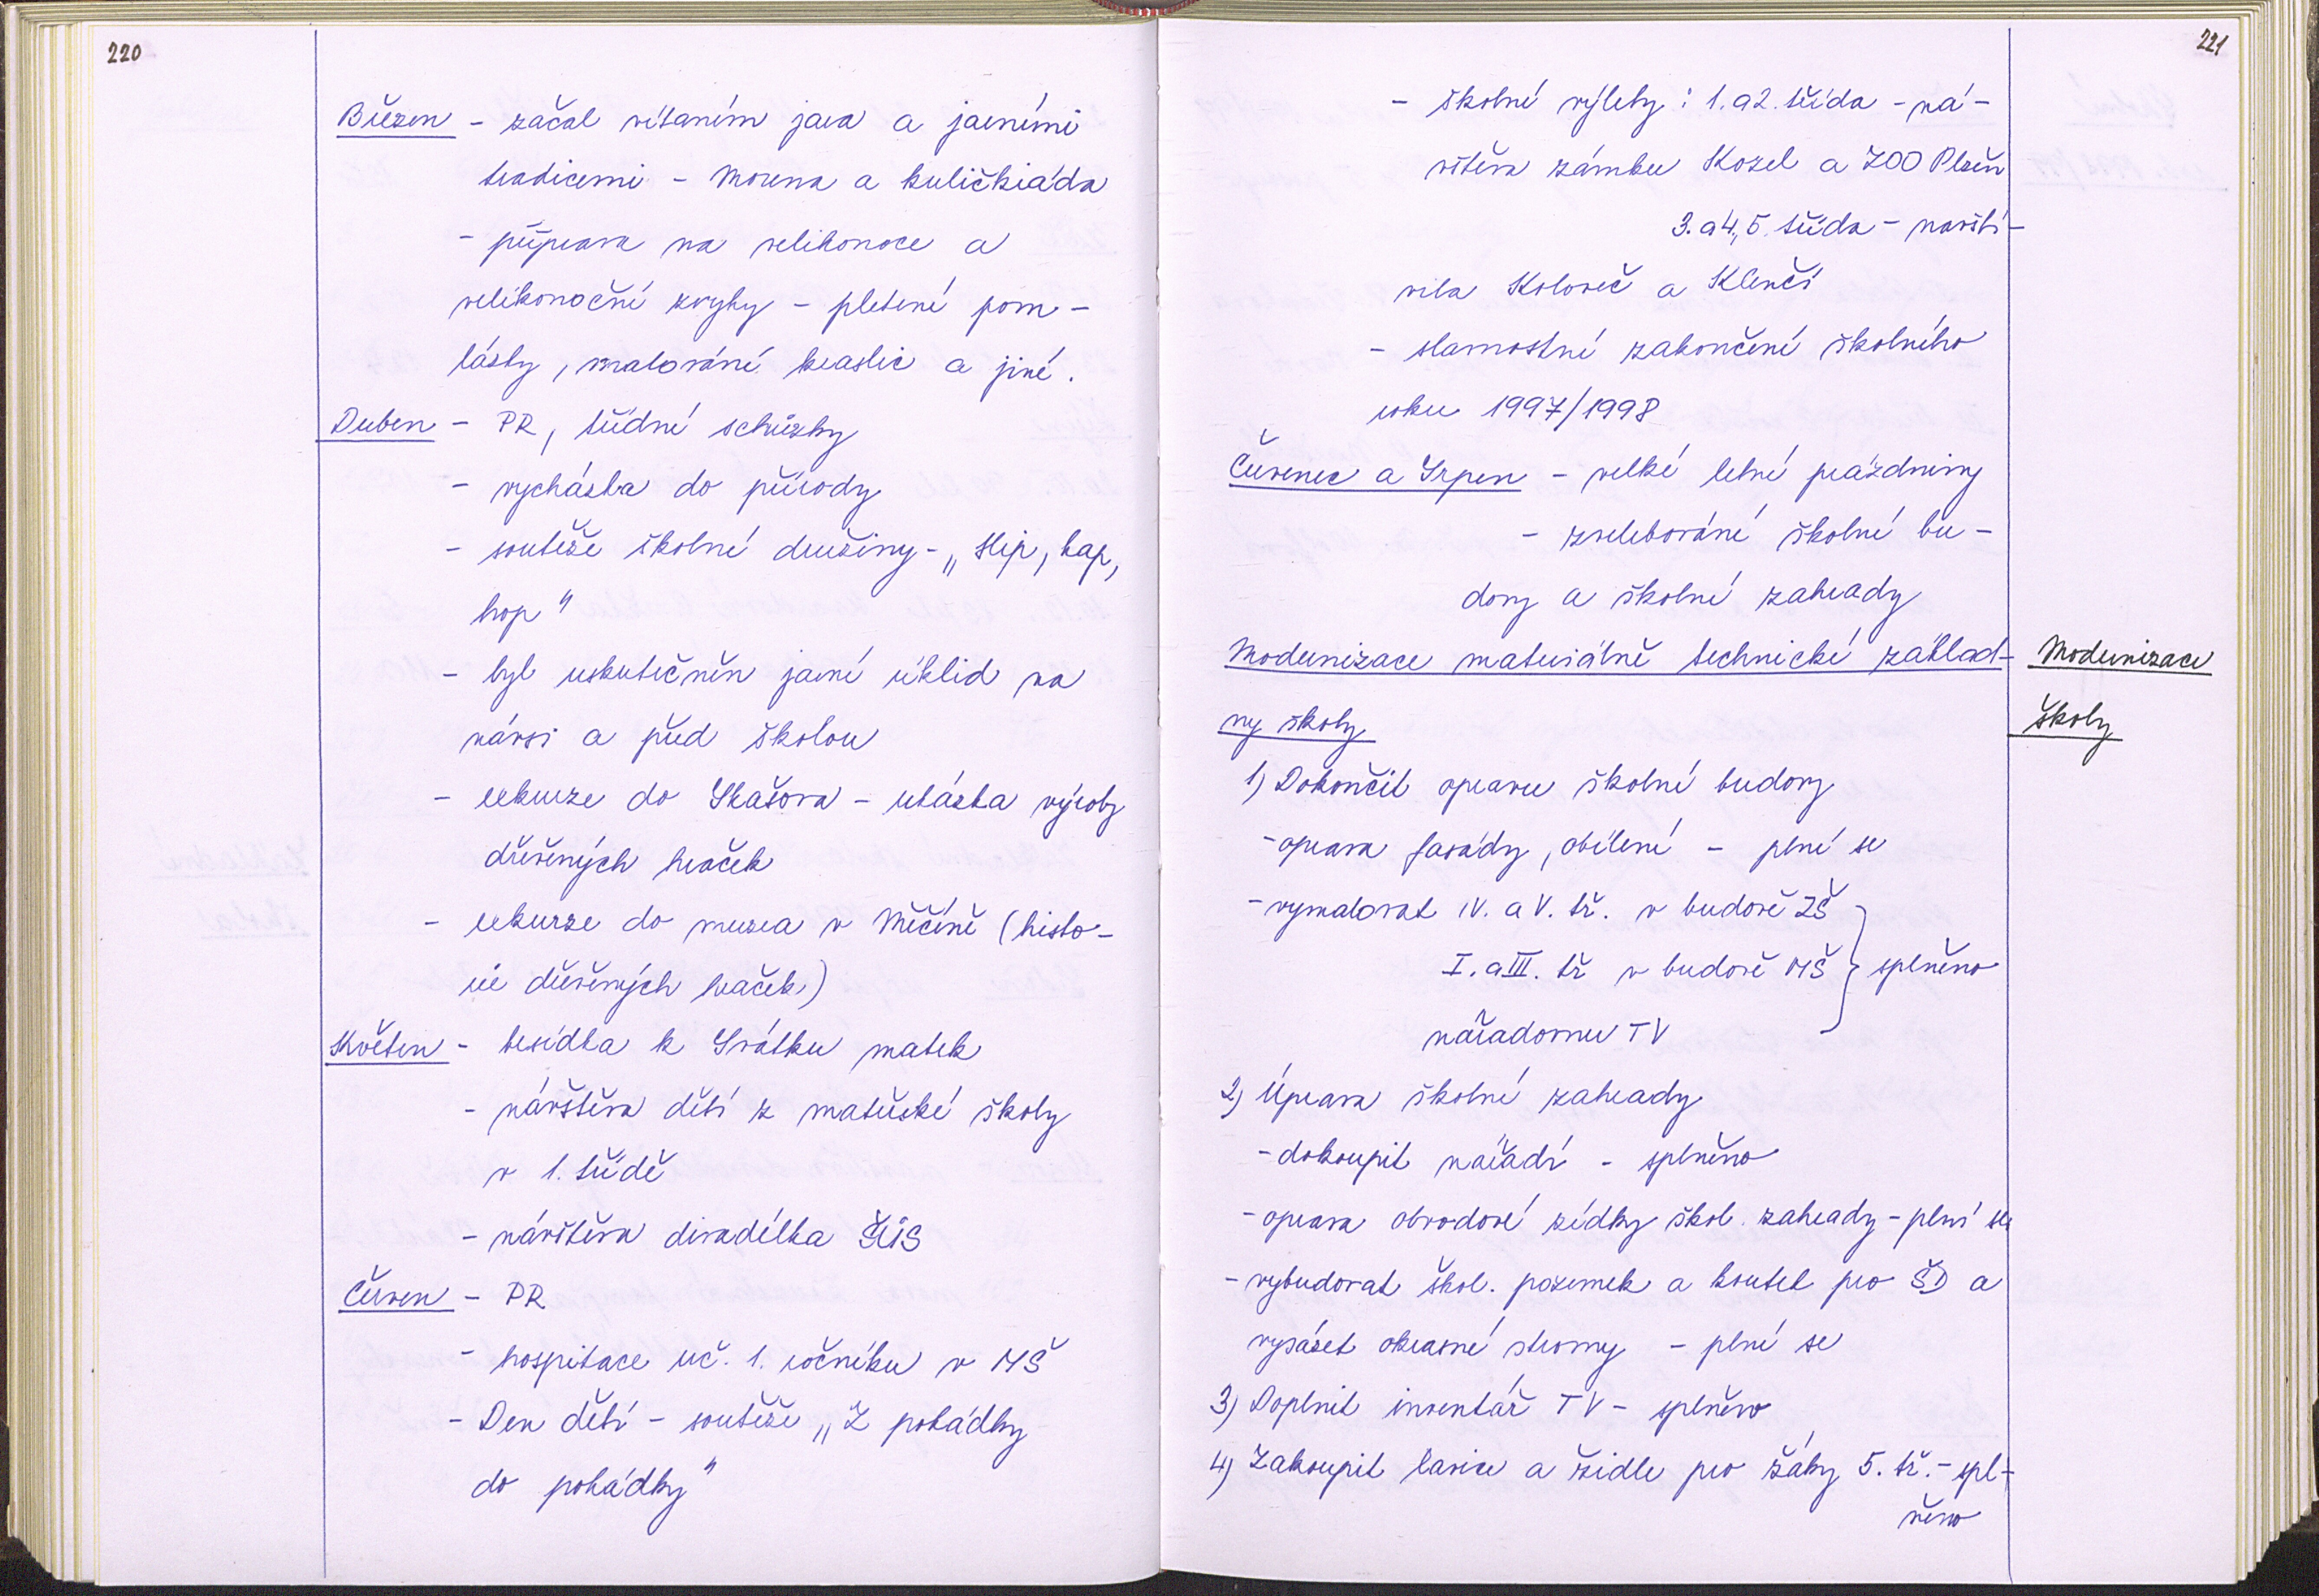 220
Březen - začal vítáním jara a jarními
tradicemi - Morena a kuličkiáda
- příprava na velikonoce a
velikonoční zvyky - pletení pom-
lázky, malování kraslic a jiné.
Duben - PR, třídní schůzky
- vycházka do přírody
- soutěže školní družiny - „Hip, hap,
hop"
- byl uskutečněn jarní úklid na
návsi a před školou
- exkurze do Skašova - ukázka výroby
dřevěných hraček
- exkurze do muzea v Měčíně (histo-
rie dřevěných hraček)
Květen - besídka k Svátku matek
- návštěva dětí z mateřské školy
v 1. třídě
- návštěva divadélka ŠÚS
Červen - PR
- hospitace uč. 1. ročníku v MŠ
- Den dětí - soutěže „Z pohádky
do pohádky"
221
- školní výlety : 1. a 2. třída - ná-
vštěva zámku Kozel a ZOO Plzeň
3. a 4., 5. třída - navští-
vila Koloveč a Klenčí
- slavnostní zakončení školního
roku 1997/1998
Červenec a Srpen - velké letní prázdniny
- zvelebování školní bu-
dovy a školní zahrady
Modernizace materiálně technické základ-
ny školy
Modernizace
školy
1) Dokončit opravu školní budovy
- oprava fasády, obílení - plní se
- vymalovat IV. a V. tř. v budově ZŠ
I. a III. tř v budově MŠ } splněno
nářaďovnu TV
2) Úprava školní zahrady
- dokoupit nářadí - splněno
- oprava obvodové zídky škol. zahrady - plní se
- vybudovat škol. pozemek a koutek pro ŠD a
vysázet okrasné stromy - plní se
3) Doplnit inventář TV - splněno
4) Zakoupit lavice a židle pro žáky 5. tř. - spl-
něno